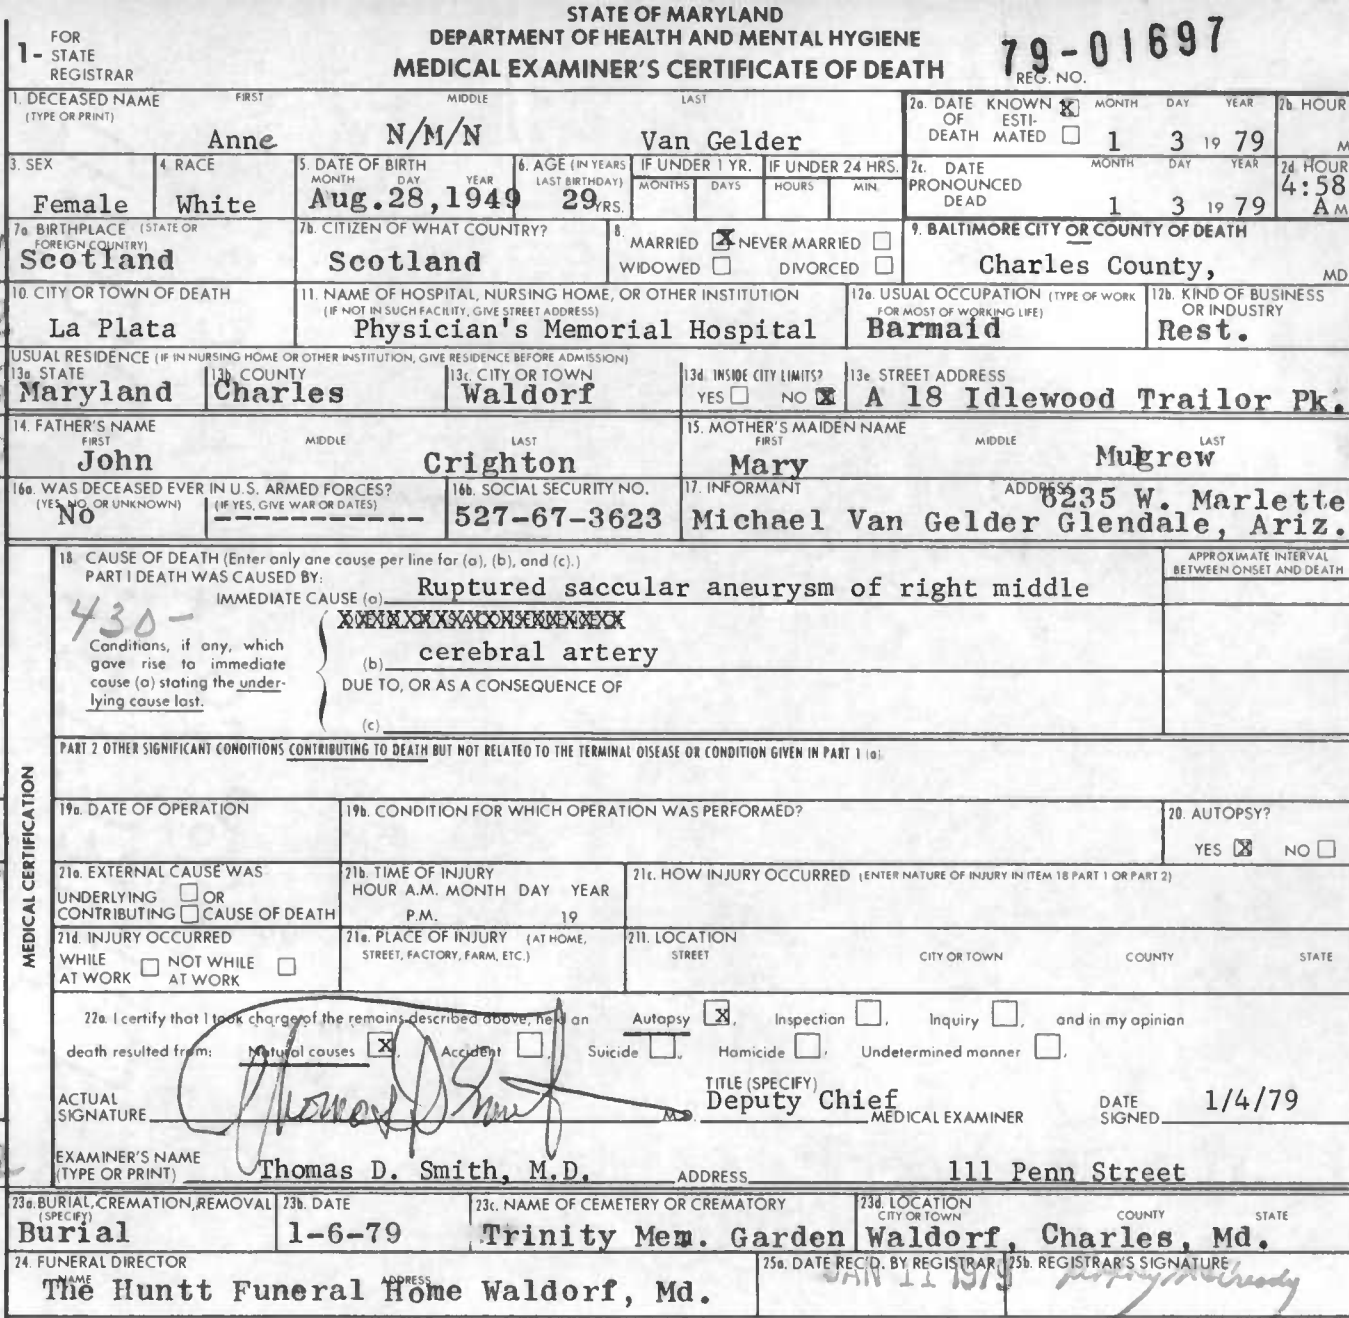 STATE OF MARYLAND
DEPARTMENT OF HEALTH AND MENTAL HYGIENE
MEDICAL EXAMINER'S CERTIFICATE OF DEATH
1- FOR STATE REGISTRAR
79-01697
REG. NO.
1. DECEASED NAME (TYPE OR PRINT) FIRST MIDDLE LAST
Anne N/M/N Van Gelder
2a. DATE OF DEATH KNOWN X ESTIMATED MONTH DAY YEAR
1 3 19 79
2b. HOUR M
3. SEX
Female
4. RACE
White
5. DATE OF BIRTH MONTH DAY YEAR
Aug.28,1949
6. AGE (IN YEARS LAST BIRTHDAY)
29 YRS.
IF UNDER 1 YR. MONTHS DAYS
IF UNDER 24 HRS. HOURS MIN.
2c. DATE PRONOUNCED DEAD MONTH DAY YEAR
1 3 19 79
2d HOUR
4:58 A M
7a. BIRTHPLACE (STATE OR FOREIGN COUNTRY)
Scotland
7b. CITIZEN OF WHAT COUNTRY?
Scotland
8. MARRIED X NEVER MARRIED
WIDOWED DIVORCED
9. BALTIMORE CITY OR COUNTY OF DEATH
Charles County, MD
10. CITY OR TOWN OF DEATH
La Plata
11. NAME OF HOSPITAL, NURSING HOME, OR OTHER INSTITUTION
(IF NOT IN SUCH FACILITY, GIVE STREET ADDRESS)
Physician's Memorial Hospital
12a. USUAL OCCUPATION (TYPE OF WORK FOR MOST OF WORKING LIFE)
Barmaid
12b. KIND OF BUSINESS OR INDUSTRY
Rest.
USUAL RESIDENCE (IF IN NURSING HOME OR OTHER INSTITUTION, GIVE RESIDENCE BEFORE ADMISSION)
13a. STATE
Maryland
13b. COUNTY
Charles
13c. CITY OR TOWN
Waldorf
13d. INSIDE CITY LIMITS?
YES NO X
13e. STREET ADDRESS
A 18 Idlewood Trailor Pk.
14. FATHER'S NAME FIRST MIDDLE LAST
John Crighton
15. MOTHER'S MAIDEN NAME FIRST MIDDLE LAST
Mary Mugrew
16a. WAS DECEASED EVER IN U.S. ARMED FORCES?
(YES, NO, OR UNKNOWN) (IF YES, GIVE WAR OR DATES)
No ------------
16b. SOCIAL SECURITY NO.
527-67-3623
17. INFORMANT ADDRESS
6235 W. Marlette
Michael Van Gelder Glendale, Ariz.
MEDICAL CERTIFICATION
18. CAUSE OF DEATH (Enter only one cause per line for (a), (b), and (c).)
APPROXIMATE INTERVAL BETWEEN ONSET AND DEATH
PART I DEATH WAS CAUSED BY:
IMMEDIATE CAUSE (a) Ruptured saccular aneurysm of right middle
430-
Conditions, if any, which gave rise to immediate cause (a) stating the underlying cause last.
(b) cerebral artery
DUE TO, OR AS A CONSEQUENCE OF
(c)
PART 2 OTHER SIGNIFICANT CONDITIONS CONTRIBUTING TO DEATH BUT NOT RELATED TO THE TERMINAL DISEASE OR CONDITION GIVEN IN PART 1 (a)
19a. DATE OF OPERATION
19b. CONDITION FOR WHICH OPERATION WAS PERFORMED?
20. AUTOPSY?
YES X NO
21a. EXTERNAL CAUSE WAS
UNDERLYING OR
CONTRIBUTING CAUSE OF DEATH
21b. TIME OF INJURY
HOUR A.M. MONTH DAY YEAR
P.M. 19
21c. HOW INJURY OCCURRED (ENTER NATURE OF INJURY IN ITEM 18 PART 1 OR PART 2)
21d. INJURY OCCURRED
WHILE AT WORK NOT WHILE AT WORK
21e. PLACE OF INJURY (AT HOME, STREET, FACTORY, FARM, ETC.)
21f. LOCATION
STREET CITY OR TOWN COUNTY STATE
22a. I certify that I took charge of the remains described above, held an Autopsy X, Inspection , Inquiry , and in my opinion
death resulted from: Natural causes X, Accident , Suicide , Homicide , Undetermined manner .
ACTUAL SIGNATURE Thomas D. Smith M.D.
TITLE (SPECIFY)
Deputy Chief MEDICAL EXAMINER
DATE SIGNED 1/4/79
EXAMINER'S NAME (TYPE OR PRINT) Thomas D. Smith, M.D.
ADDRESS 111 Penn Street
23a. BURIAL, CREMATION, REMOVAL (SPECIFY)
Burial
23b. DATE
1-6-79
23c. NAME OF CEMETERY OR CREMATORY
Trinity Mem. Garden
23d. LOCATION CITY OR TOWN COUNTY STATE
Waldorf, Charles, Md.
24. FUNERAL DIRECTOR
NAME ADDRESS
The Huntt Funeral Home Waldorf, Md.
25a. DATE REC'D. BY REGISTRAR
JAN 11 1979
25b. REGISTRAR'S SIGNATURE